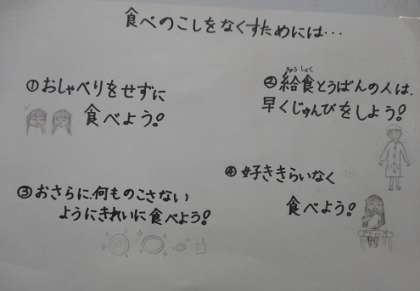 食べのこしをなくすためには…
①おしゃべりをせずに
食べよう!
②給食とうばんの人は、
きゅうしょく
早くじゅんびをしよう!
③おさらに、何ものこさない
ようにきれいに食べよう!
④好ききらいなく
食べよう!